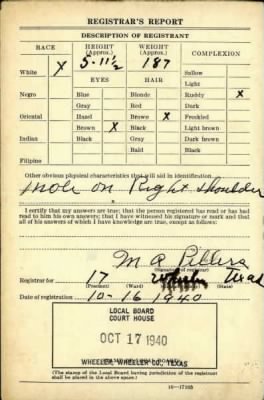 REGISTRAR'S REPORT
DESCRIPTION OF REGISTRANT
RACE HEIGHT (Approx.) WEIGHT (Approx.) COMPLEXION
White X 5-11½ 187 Sallow
EYES HAIR Light
Negro Blue Blonde Ruddy X
Gray Red Dark
Oriental Hazel Brown X Freckled
Brown X Black Light brown
Indian Black Gray Dark brown
Bald Black
Filipino
Other obvious physical characteristics that will aid in identification
Mole on Right Shoulder
I certify that my answers are true; that the person registered has read or has had
read to him his own answers; that I have witnessed his signature or mark and that
all of his answers of which I have knowledge are true, except as follows:
(Signature of registrar)
Registrar for 17 Wheeler Texas
(Precinct) (Ward)
Date of registration 10-16 1940
LOCAL BOARD
COURT HOUSE
OCT 17 1940
WHEELER, WHEELER CO., TEXAS
(The stamp of the Local Board having jurisdiction of the registrant
shall be placed in the above space.)